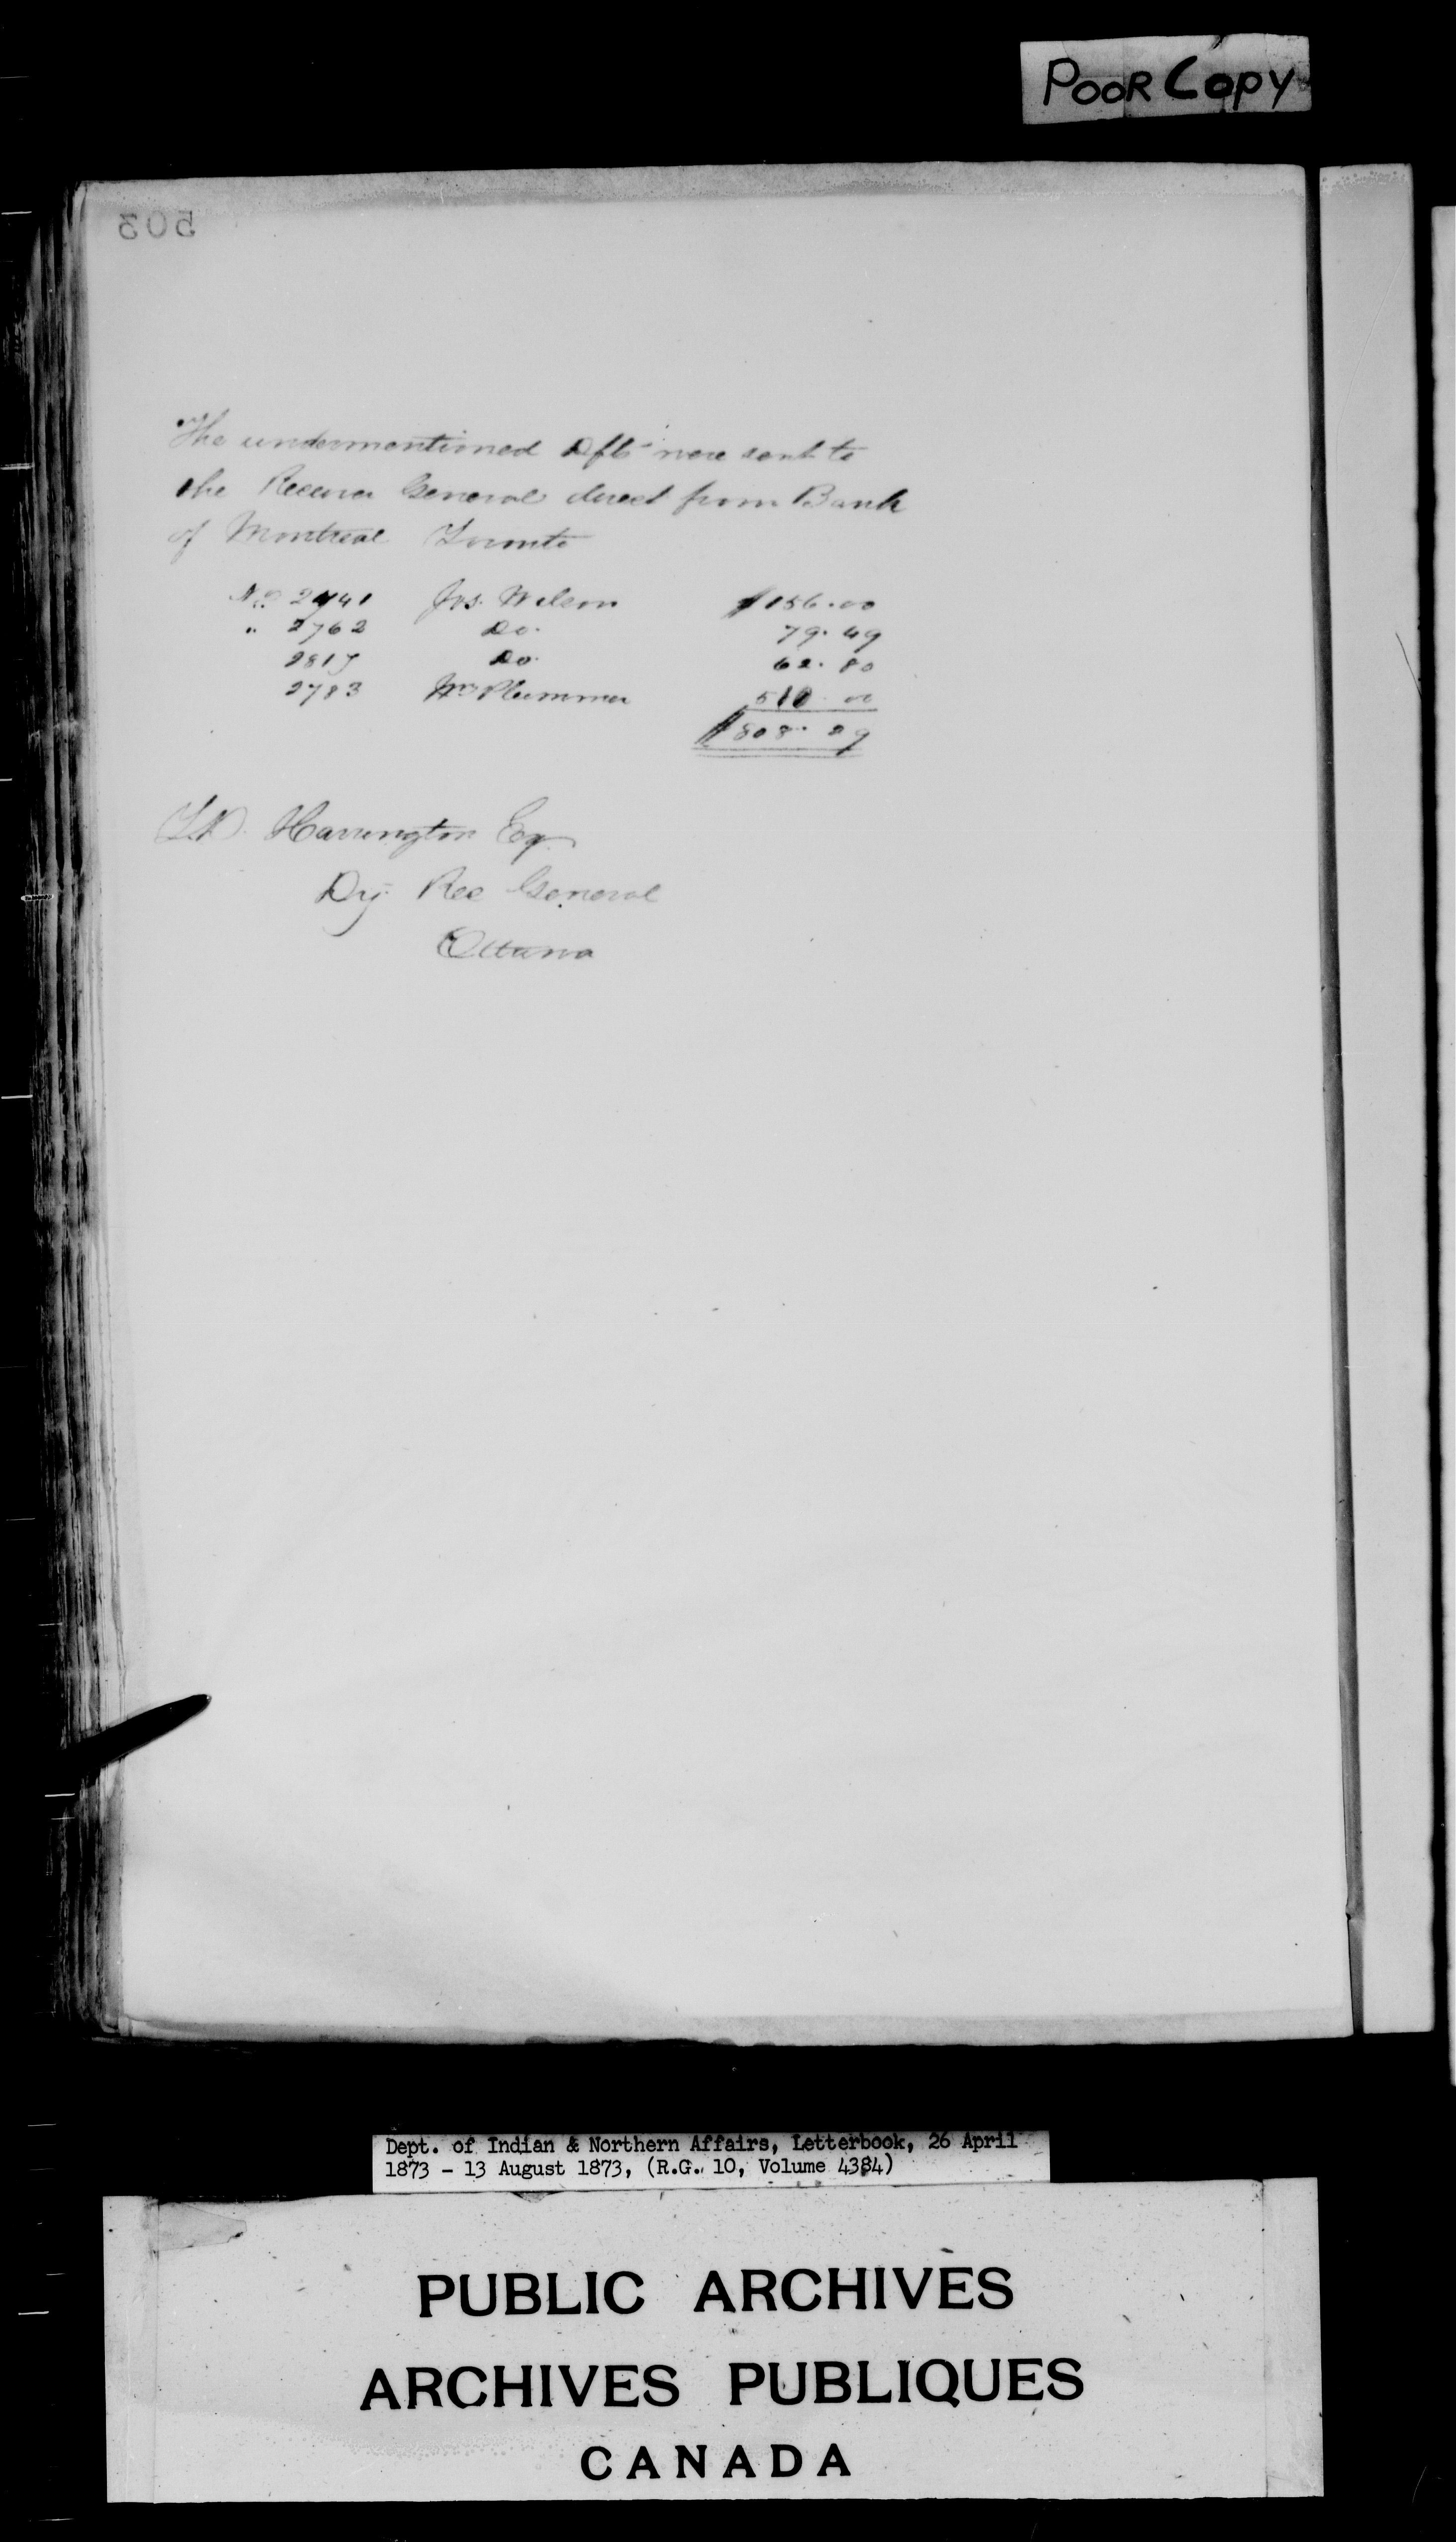 POOR COPY
503
The undermentioned Dfts were sent to
the Receiver General direct from Bank
of Montreal Toronto
No 2741 Jos. Wilson $156.00
" 2762 Do. 79.49
2817 Do. 62.80
2783 Wm Plummer 510.00
$808.29
T.D. Harrington Esq
Dy. Rec General
Ottawa
Dept. of Indian & Northern Affairs, Letterbook, 26 April
1873 - 13 August 1873, (R.G. 10, Volume 4384)
PUBLIC ARCHIVES
ARCHIVES PUBLIQUES
CANADA